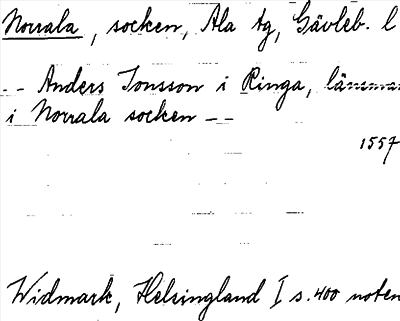 Norrala, socken, Ala tg, Gävleb. l
-- Anders Jonsson i Ringa, länsman
i Norrala socken --
1557
Widmark, Helsingland I s. 400 noten